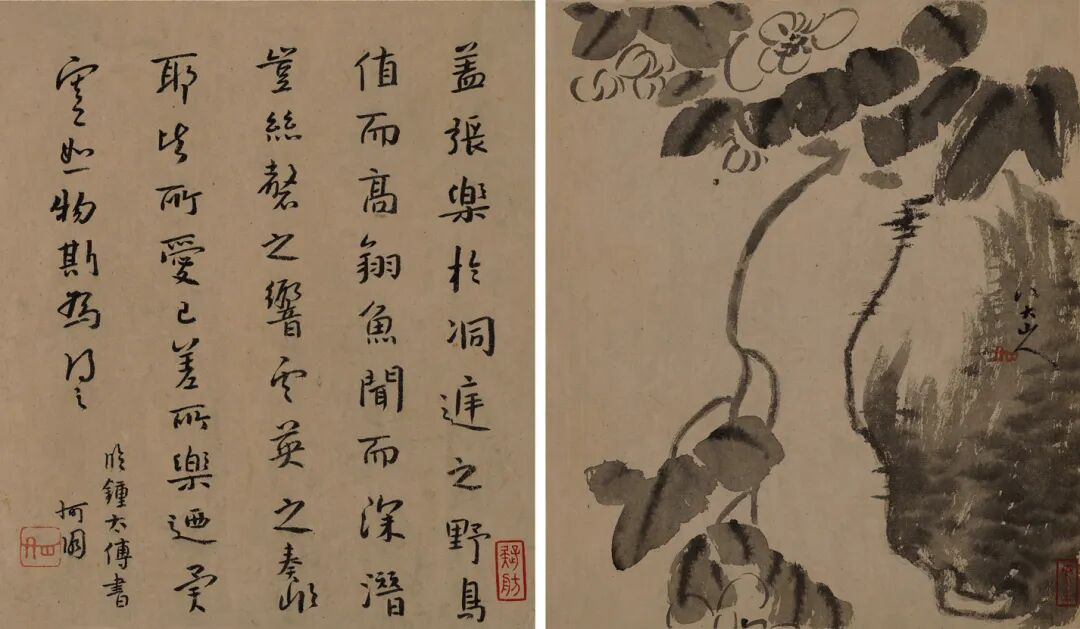 蓋張樂於洞庭之野鳥
值而高翔魚聞而深潛
豈絲磬之響雲英之奏
耶此所愛已差所樂迺異
寔如一物斯為得之
臨鍾太傅書
八大山人